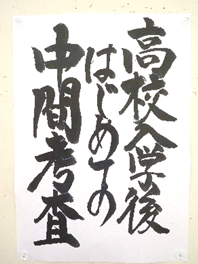 高校入学後
はじめての
中間考査